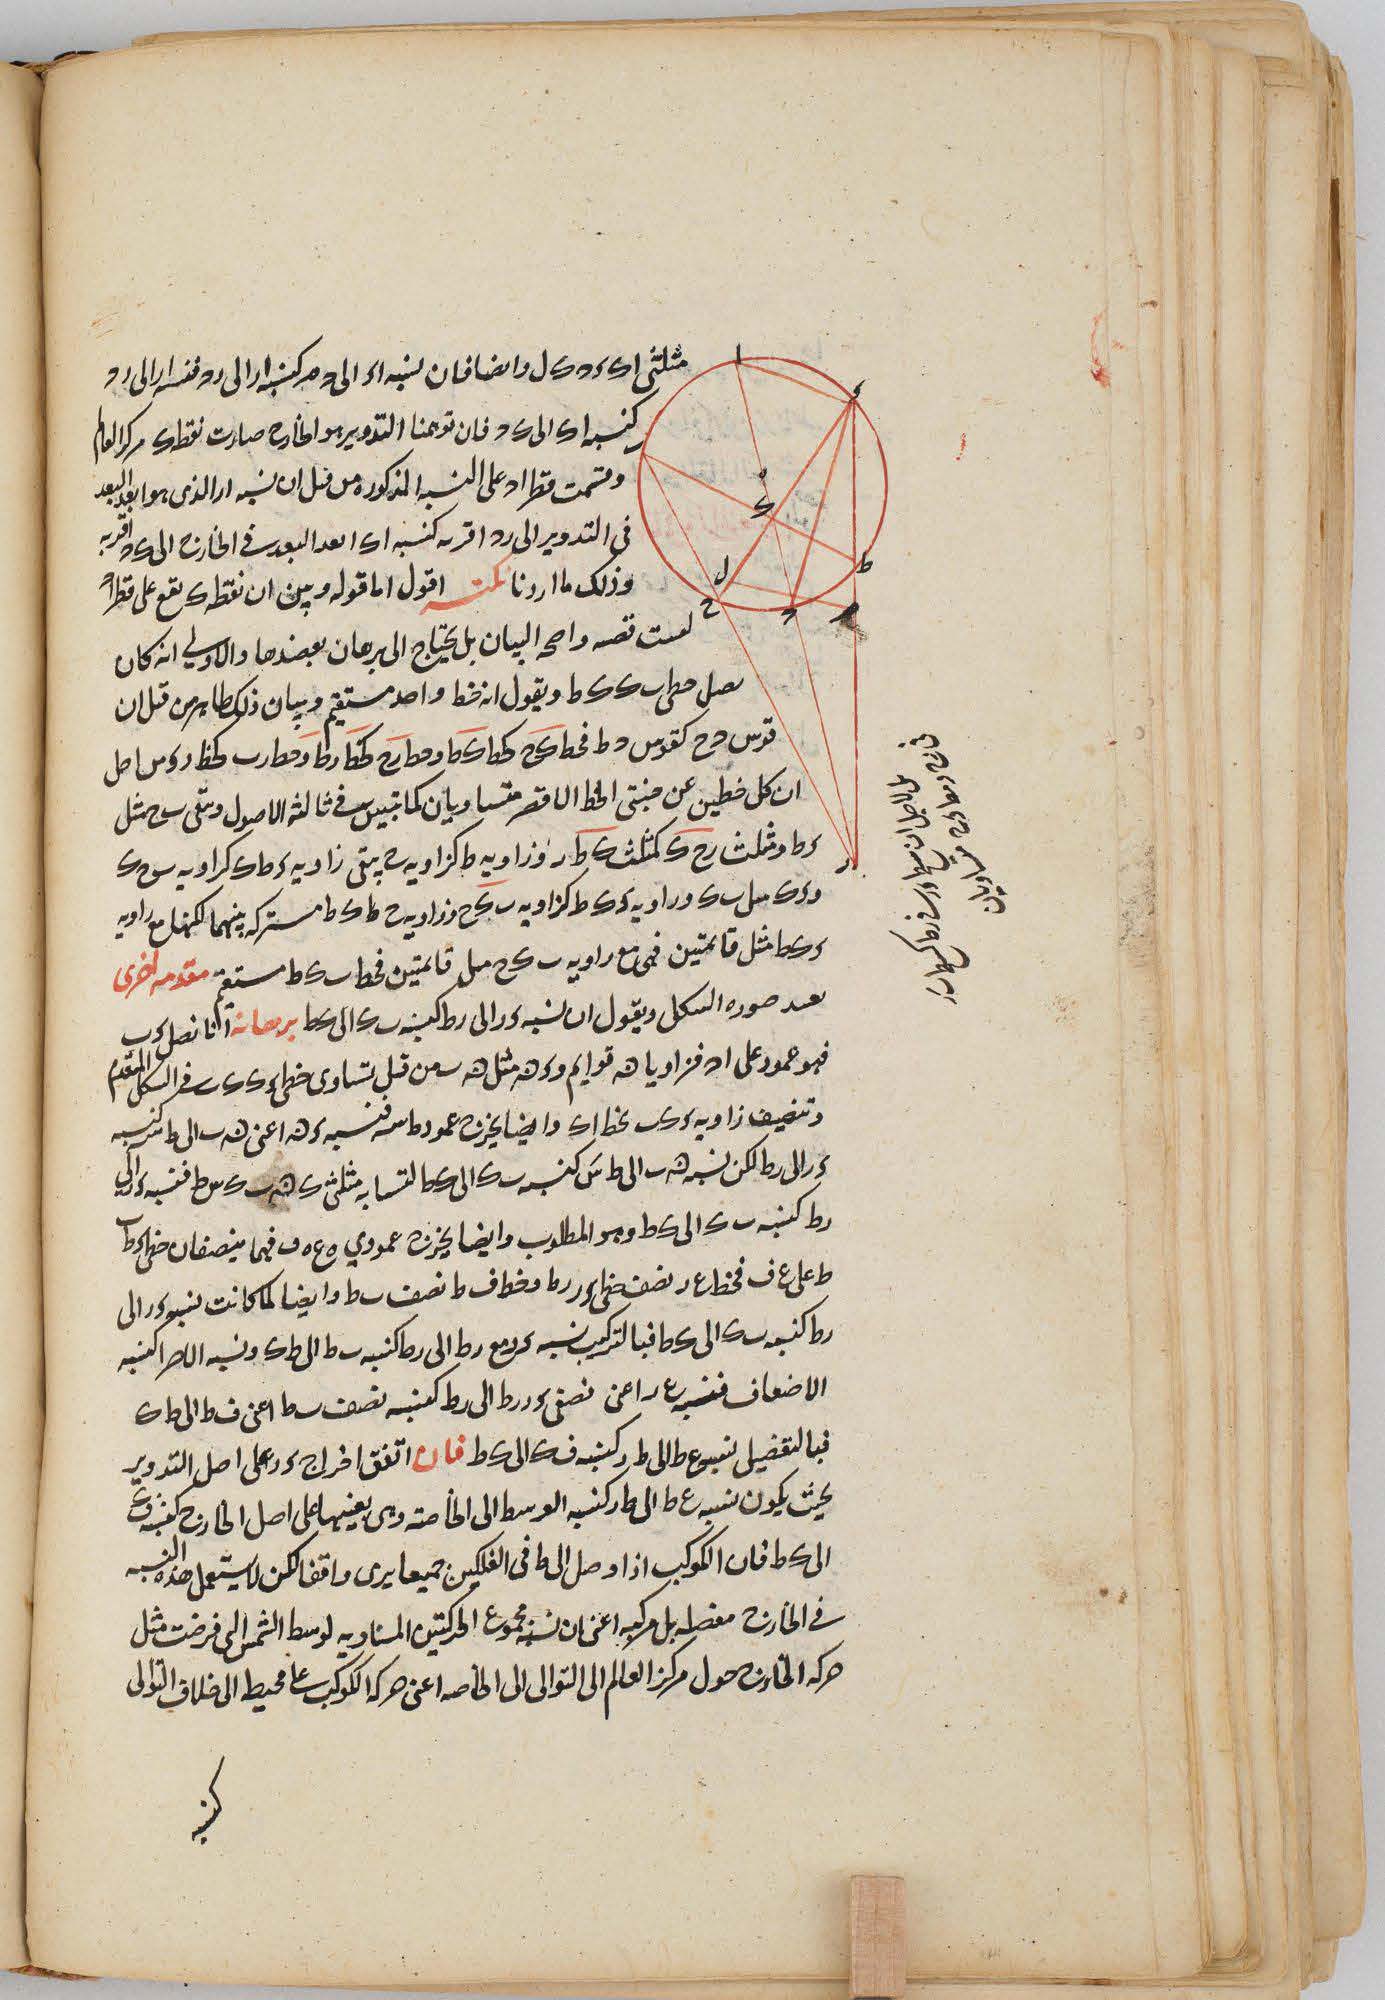 مثلثي اى ى د ى ل وايضا فان نسبه اى الى د م كنسبه ار الى رد فنسبه ار الى رد
كنسبه اى الى ى د فان توهمنا التدوير هو الخارج صارت نقطه ى مركز العالم
وقسمت قطر اد على النسبه المذكوره من قبل ان نسبه ار الذى هو ابعد البعد
فى التدوير الى رد اقربه كنسبه اى ابعد البعد فى الخارج الى ى د اقربه
وذلك ما اردنا اقول اما قوله وبين ان نقطه ى تقع على قطر اد
ليست قصه واضحه البيان بل يحتاج الى برهان يعضدها والاولى انه كان
يصل خطى ب ى ى ط ويقول انه خط واحد مستقيم وبيان ذلك ظاهر من قبل ان
قوس د ح كقوس د ط فخط ى ح كخط ى ط وخط ر ح كخط ر ط وخط ر ب كخط ر ء من اجل
ان كل خطين عن جنبتى الخط الاقصر متساويان كما تبين فى ثالثه الاصول ويبقى ب ح مثل
ء ط ومثلث ر ح ى كمثلث ى ط ر وزاويه ط كزاويه ح يبقى زاويه ء ط ى كزاويه ب ح ى
و ء ى مثل ب ى وزاويه ء ى ط كزاويه ب ى ح وزاويه ح ى ط مشتركه بينهما لكنها مع زاويه
ء ى ط مثل قائمتين فهى مع زاويه ب ى ح مثل قائمتين فخط ب ى ط مستقيم مقدمه اخرى
نعيد صوره الشكل ويقول ان نسبه ء ر الى ر ط كنسبه ب ى الى ى ط برهانه انا نصل ء ب
فهو عمود على اد فزوايا ه قوايم و ء ه مثل ه ب من قبل تساوى خطى ء ى ى ب فى الشكل المتقدم
وتنصيف زاويه ء ى ب بخط اى وايضا يخرج عمود ط س فنسبه ء ه اعنى ه ب الى ط س كنسبه
ء ر الى ر ط لكن نسبه ه ب الى ط س كنسبه ب ى الى ى ط لتشابه مثلثى ى ه ب ى س ط فنسبه ء ر الى
ر ط كنسبه ب ى الى ى ط وهو المطلوب وايضا يخرج عمودي ه ع ه ف فهما ينصفان خطى ء ط ب
ط على ع ف فخط ع ر نصف خطى ء ر ر ط وخط ف ط نصف ب ط وايضا لما كانت نسبه ء ر الى
ر ط كنسبه ب ى الى ى ط فبالتركيب نسبه ء ر مع ر ط الى ر ط كنسبه ب ط الى ط ى ونسبه الاجزا كنسبه
الاضعاف فنسبه ع ر اعنى نصفى ء ر ر ط الى ر ط كنسبه نصف ب ط اعنى ف ط الى ط ى
فبالتفصيل نسبه ع ط الى ط ر كنسبه ف ى الى ى ط فان اتفق اخراج ء ر على اصل التدوير
بحيث يكون نسبه ع ط الى ط ر كنسبه الوسط الى الخاصه وهى بعينها على اصل الخارج كنسبه ف ى
الى ى ط فان الكوكب اذا وصل الى ط فى الفلكين جميعا يرى واقفا لكن لا يستعمل هذه النسبه
فى الخارج مفصله بل مركبه اعنى ان نسبه مجموع الحركتين المساويه لوسط الشمس التى فرضت مثل
حركه الخارج حول مركز العالم الى التوالى الى الخاصه اعنى حركه الكوكب على محيطه الى خلاف التوالى
كنسبه